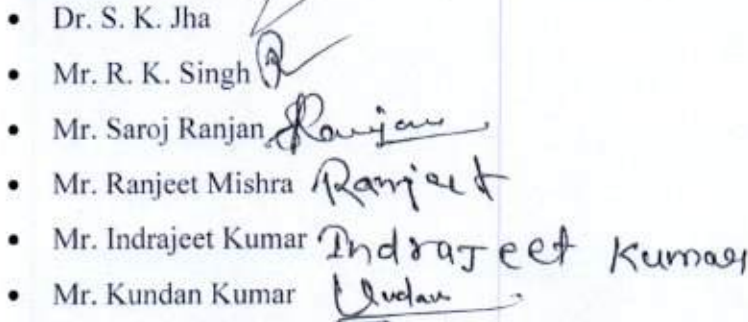 • Dr. S. K. Jha
• Mr. R. K. Singh
• Mr. Saroj Ranjan Ranjan
• Mr. Ranjeet Mishra Ranjeet
• Mr. Indrajeet Kumar Indrajeet Kumar
• Mr. Kundan Kumar